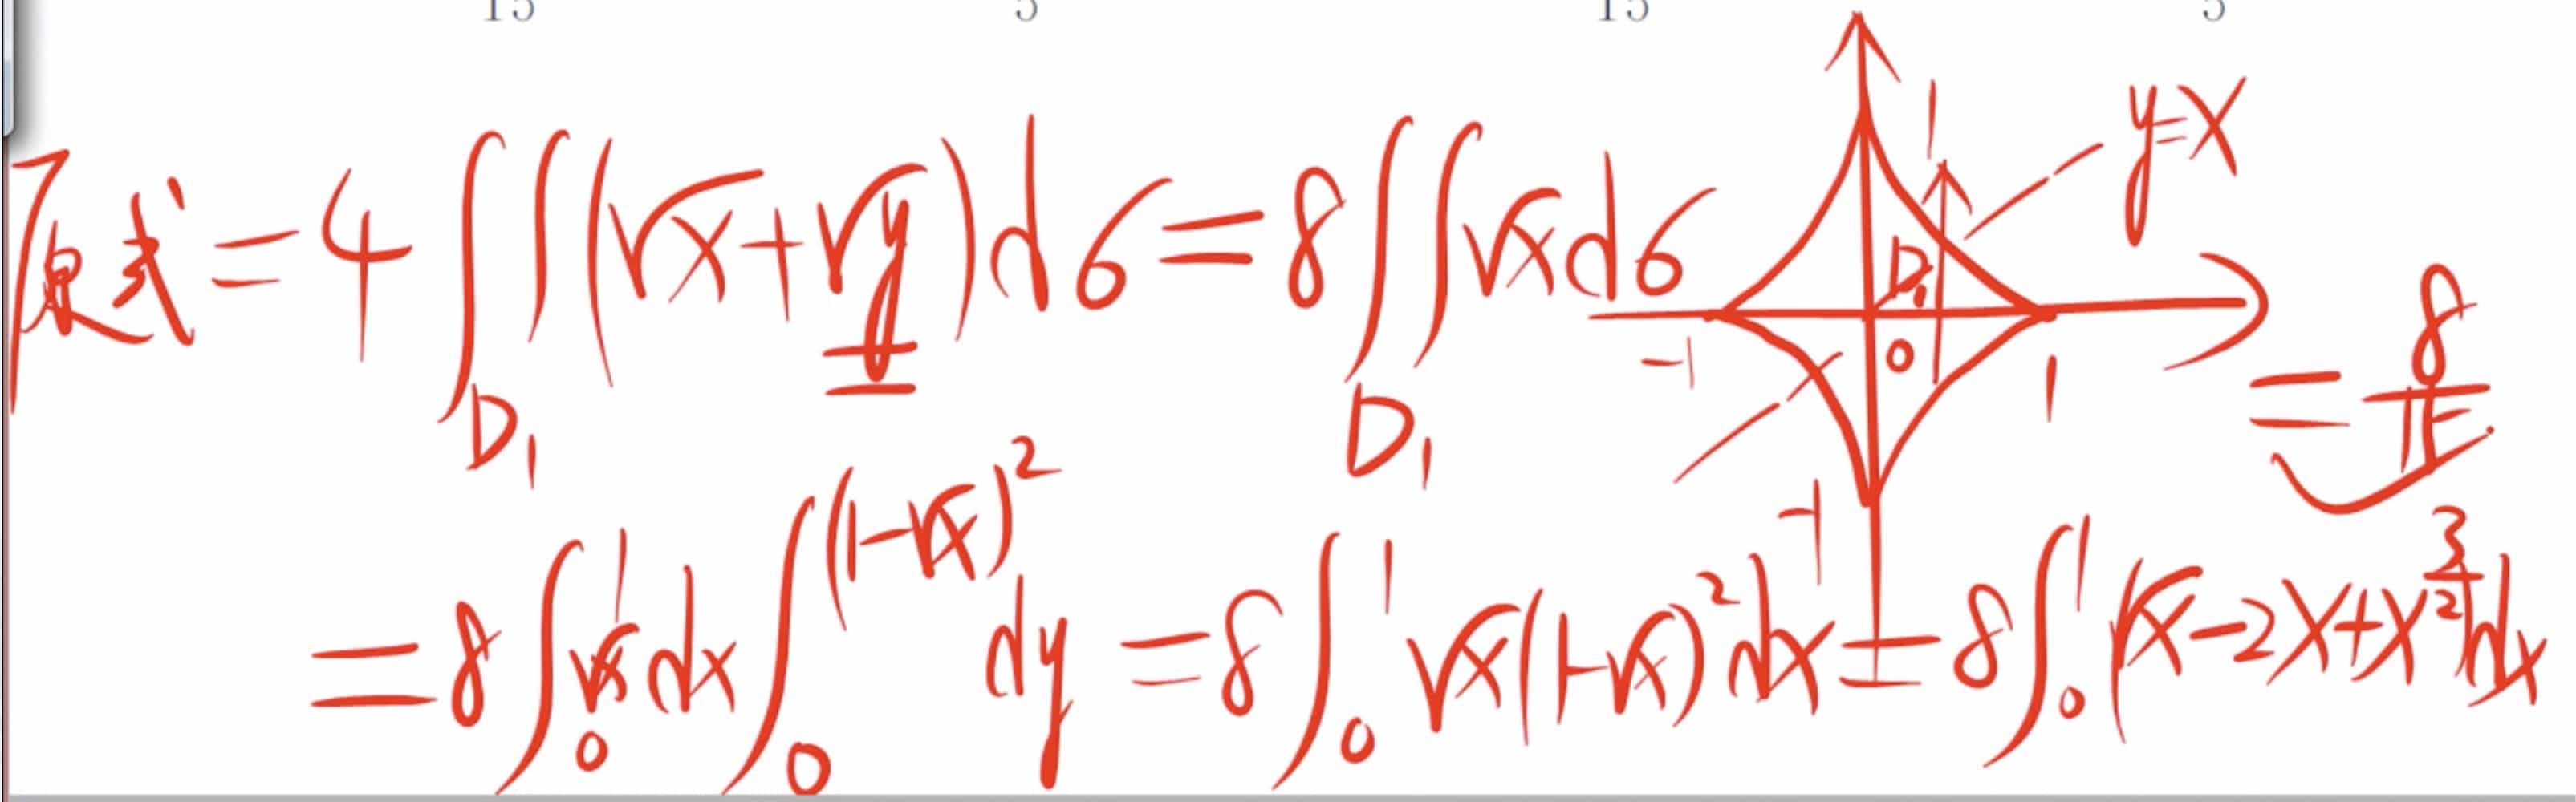 15 5 15 5
原式=4∬_{D₁}(√x+√y)dσ=8∬_{D₁}√xdσ
1
y=x
D₁
-1 0 1
-1
=8∫₀¹√xdx∫₀^{(1-√x)²}dy=8∫₀¹√x(1-√x)²dx=8∫₀¹(√x-2x+x^{3/2})dx
=8/15.